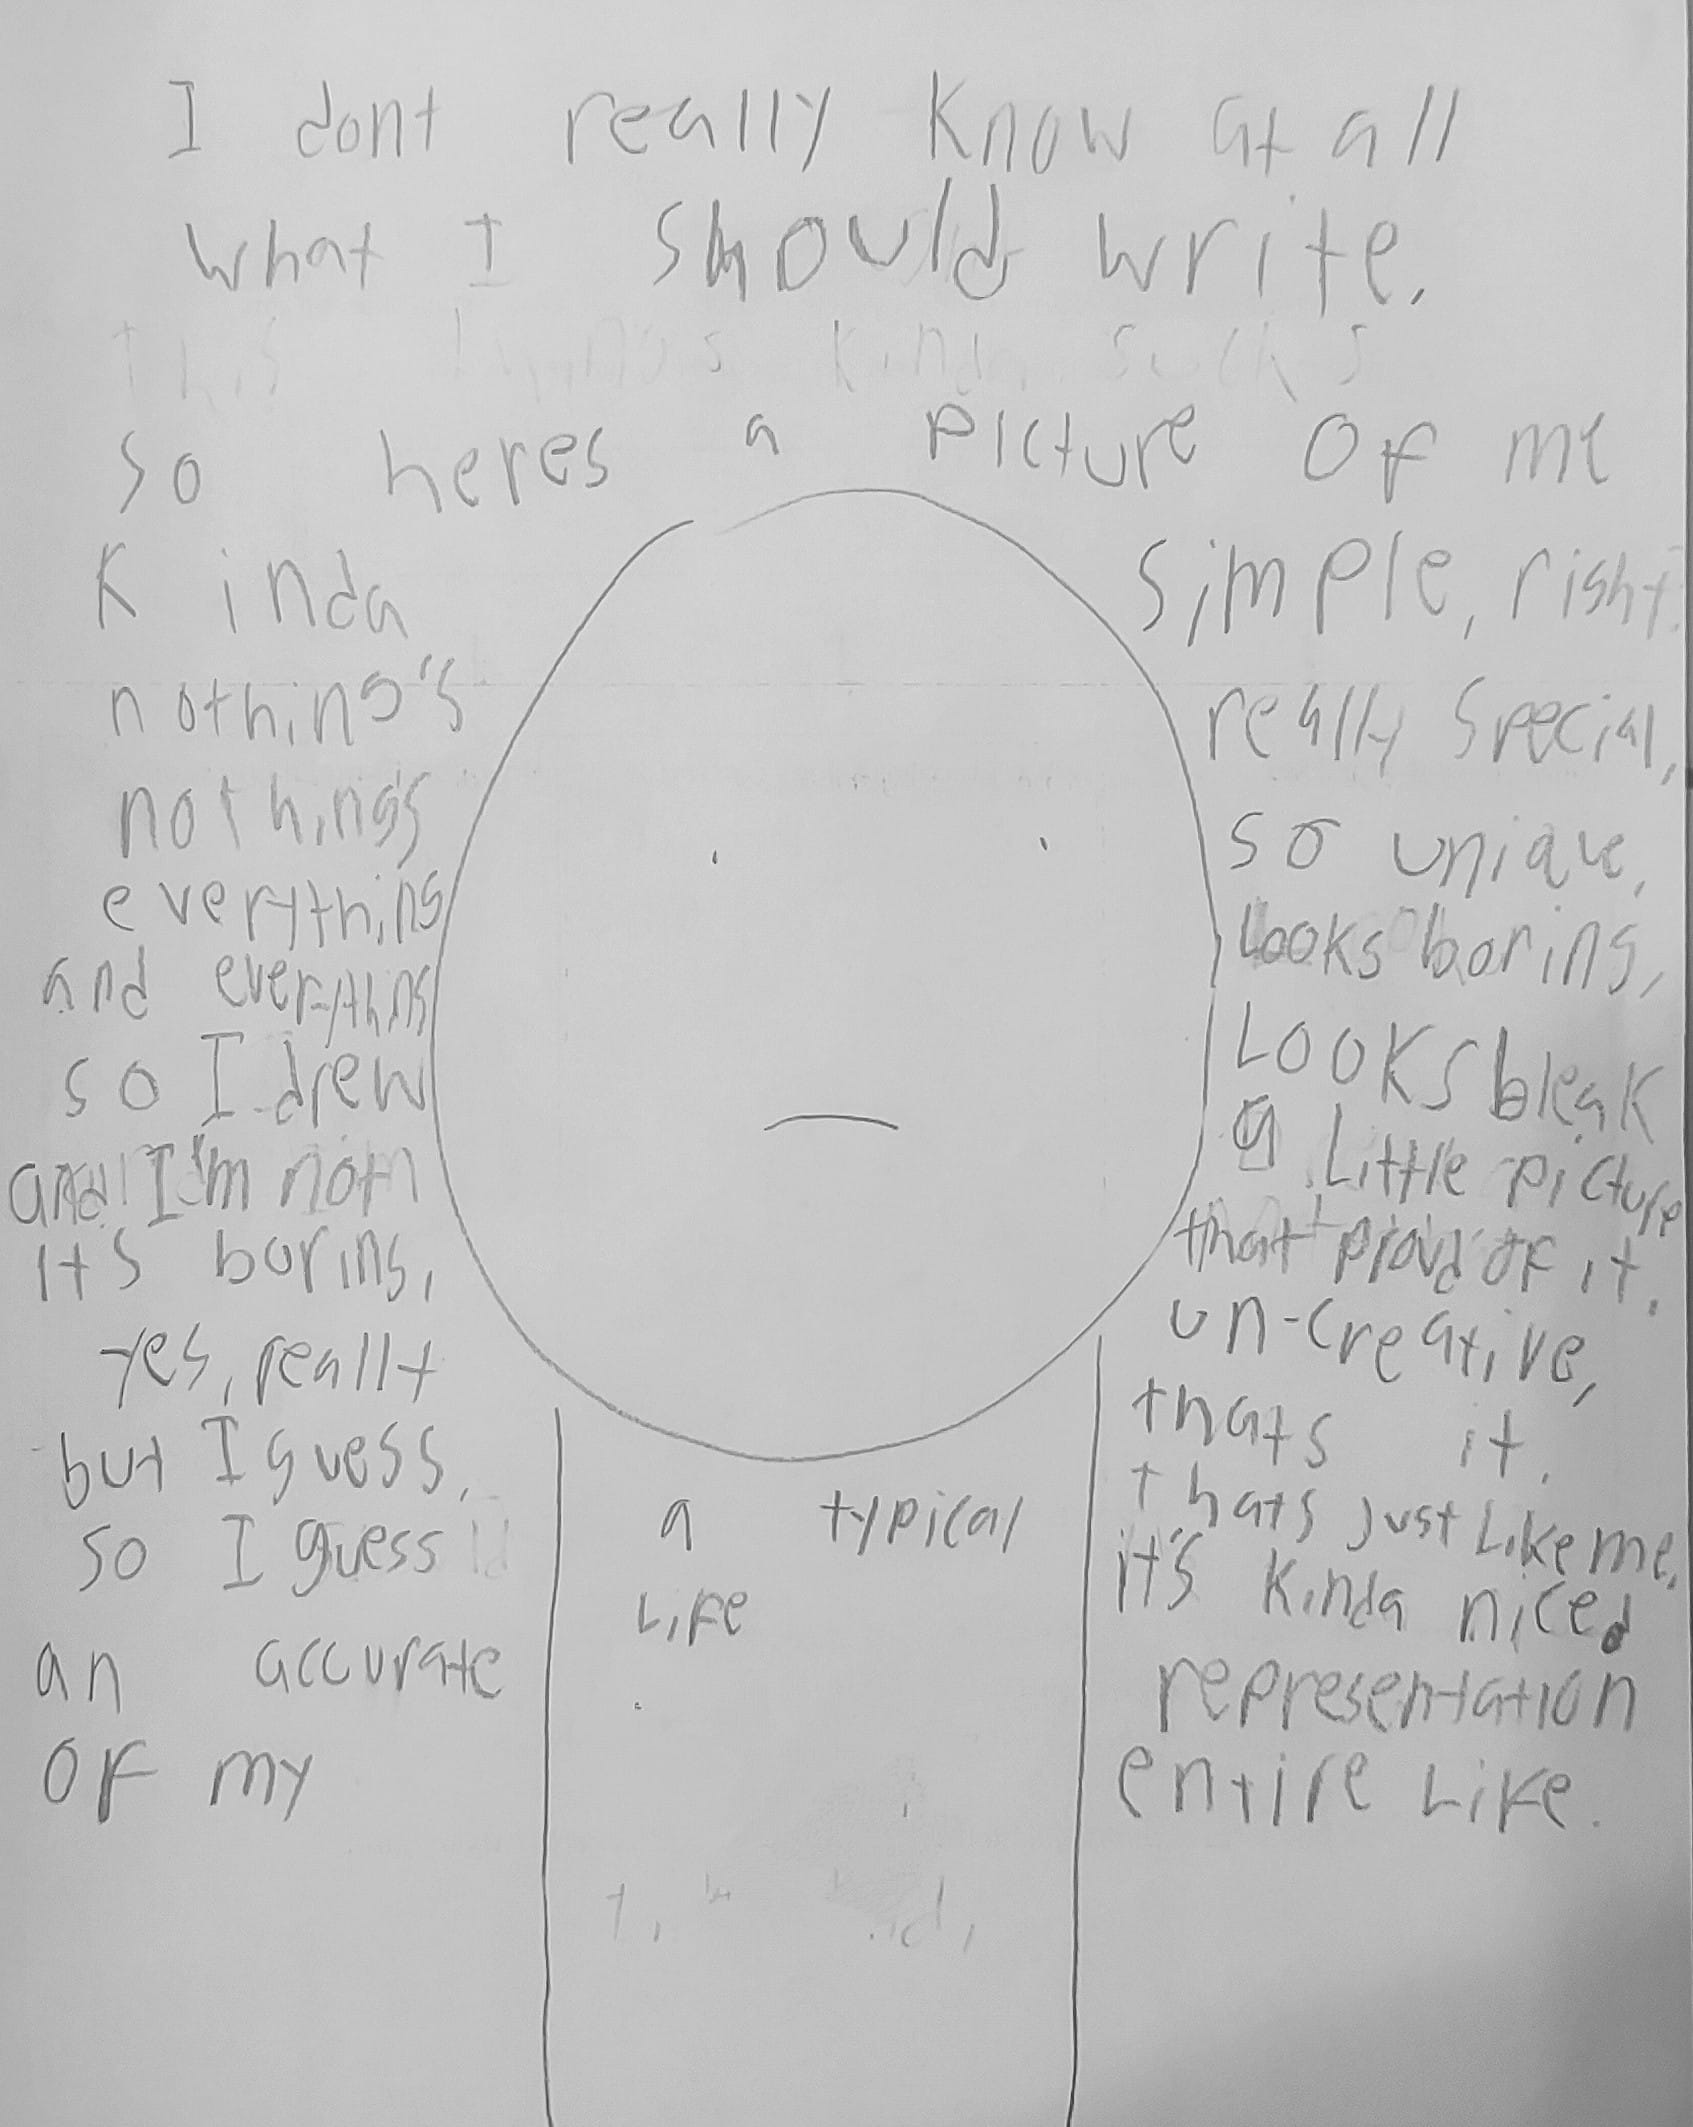 I dont really know at all
what I should write.
so heres a picture of me
Kinda simple, right?
nothing's really special,
nothing's so unique,
everything Looks boring,
and everything Looks bleak
so I drew a Little picture
and I'm not that proud of it.
its boring, un-creative,
yes, really thats it.
but I guess, thats just Like me.
so I guess it's kinda nice
an accurate representation
of my entire Life.
a typical
Life